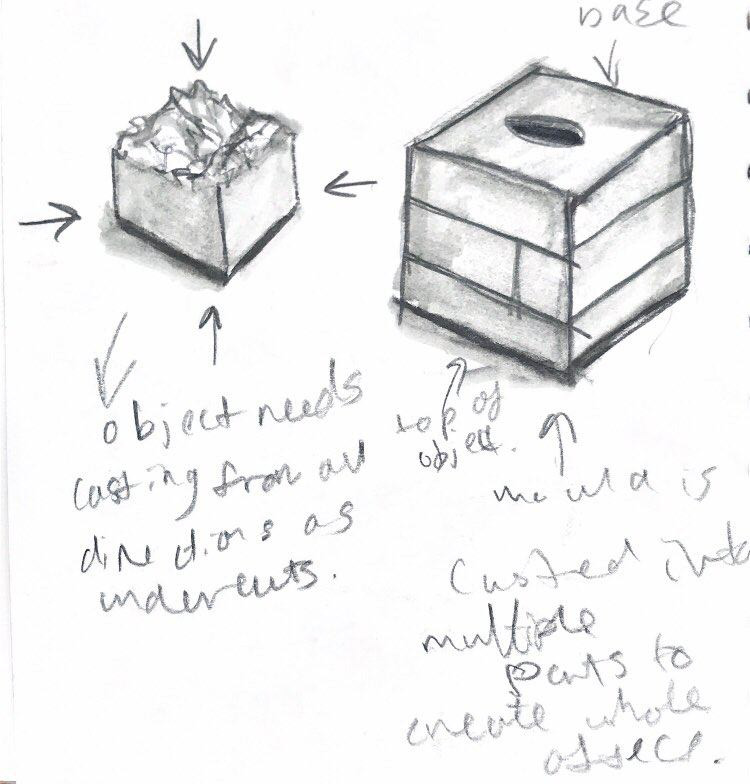 base
object needs
casting from all
directions as
undercuts.
top of
object.
mould is
casted into
multiple
parts to
create whole
object.